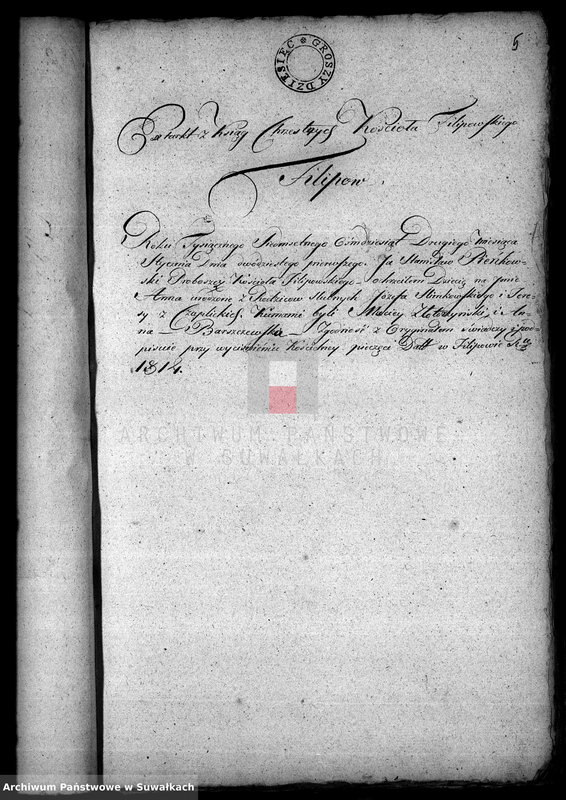 5
GROSZY DZIESIĘĆ
Extrakt z Xiąg Chrzestnych Kościoła Filipowskiego
Filipow
Roku Tysiącznego Siedmsetnego Ośmdziesiąt Drugiego miesiąca
Stycznia Dnia dwudziestego pierwszego. Ja Stanisław Pieńkow-
ski Proboszcz Kościoła Filipowskiego ochrzciłem Dziecię na Imie
Anna urodzone z Rodziców Ślubnych Józefa Słinkowskiego i Tere-
sy z Czaplickich. Kumami byli Maciey i An-
na Barszczewska Zgodność z Oryginałem świadczę i pod-
pisuię przy wyciśnieniu Kościelney pieczęci Datt w Filipowie
1814.
ARCHIWUM PAŃSTWOWE
W SUWAŁKACH
Archiwum Państwowe w Suwałkach